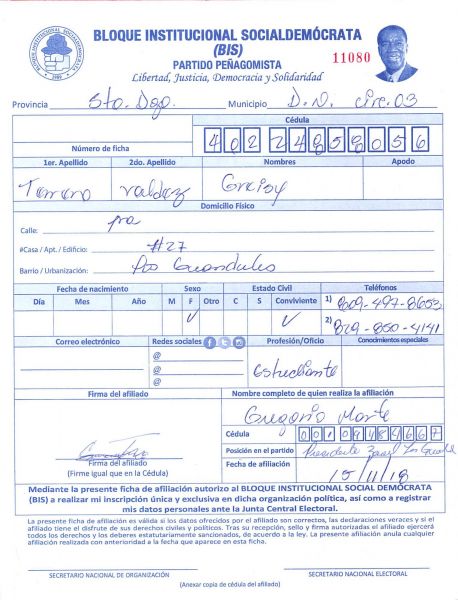 BLOQUE INSTITUCIONAL SOCIALDEMÓCRATA
BLOQUE INSTITUCIONAL SOCIALDEMÓCRATA
(BIS)
11080
PARTIDO PEÑAGOMISTA
Libertad, Justicia, Democracia y Solidaridad
Provincia Sto. Dgo. Municipio D.N. circ. 03
Cédula
Número de ficha
1er. Apellido 2do. Apellido Nombres Apodo
Valdez
Domicilio Físico
Calle: 1ra
#Casa / Apt. / Edificio: #27
Barrio / Urbanización: Los Guandules
Fecha de nacimiento Sexo Estado Civil Teléfonos
Día Mes Año M F Otro C S Conviviente 1) 809-497-8653
2) 829-850-4141
Correo electrónico Redes sociales Profesión/Oficio Conocimientos especiales
@
@
@
Estudiante
Firma del afiliado Nombre completo de quien realiza la afiliación
Gregorio Marte
Cédula
Posición en el partido Presidente Zonal Los Guandules
Firma del afiliado
(Firme igual que en la Cédula)
Fecha de afiliación 15/11/18
Mediante la presente ficha de afiliación autorizo al BLOQUE INSTITUCIONAL SOCIAL DEMÓCRATA
(BIS) a realizar mi inscripción única y exclusiva en dicha organización política, así como a registrar
mis datos personales ante la Junta Central Electoral.
La presente ficha de afiliación es válida si los datos ofrecidos por el afiliado son correctos, las declaraciones veraces y si el
afiliado tiene el disfrute de sus derechos civiles y políticos. Tras su recepción, sello y firma autorizadas el afiliado ejercerá
todos los derechos y los deberes estatutariamente sancionados, de acuerdo a la ley. La presente afiliación anula cualquier
afiliación realizada con anterioridad a la fecha que aparece en esta ficha.
SECRETARIO NACIONAL DE ORGANIZACIÓN SECRETARIO NACIONAL ELECTORAL
(Anexar copia de cédula del afiliado)